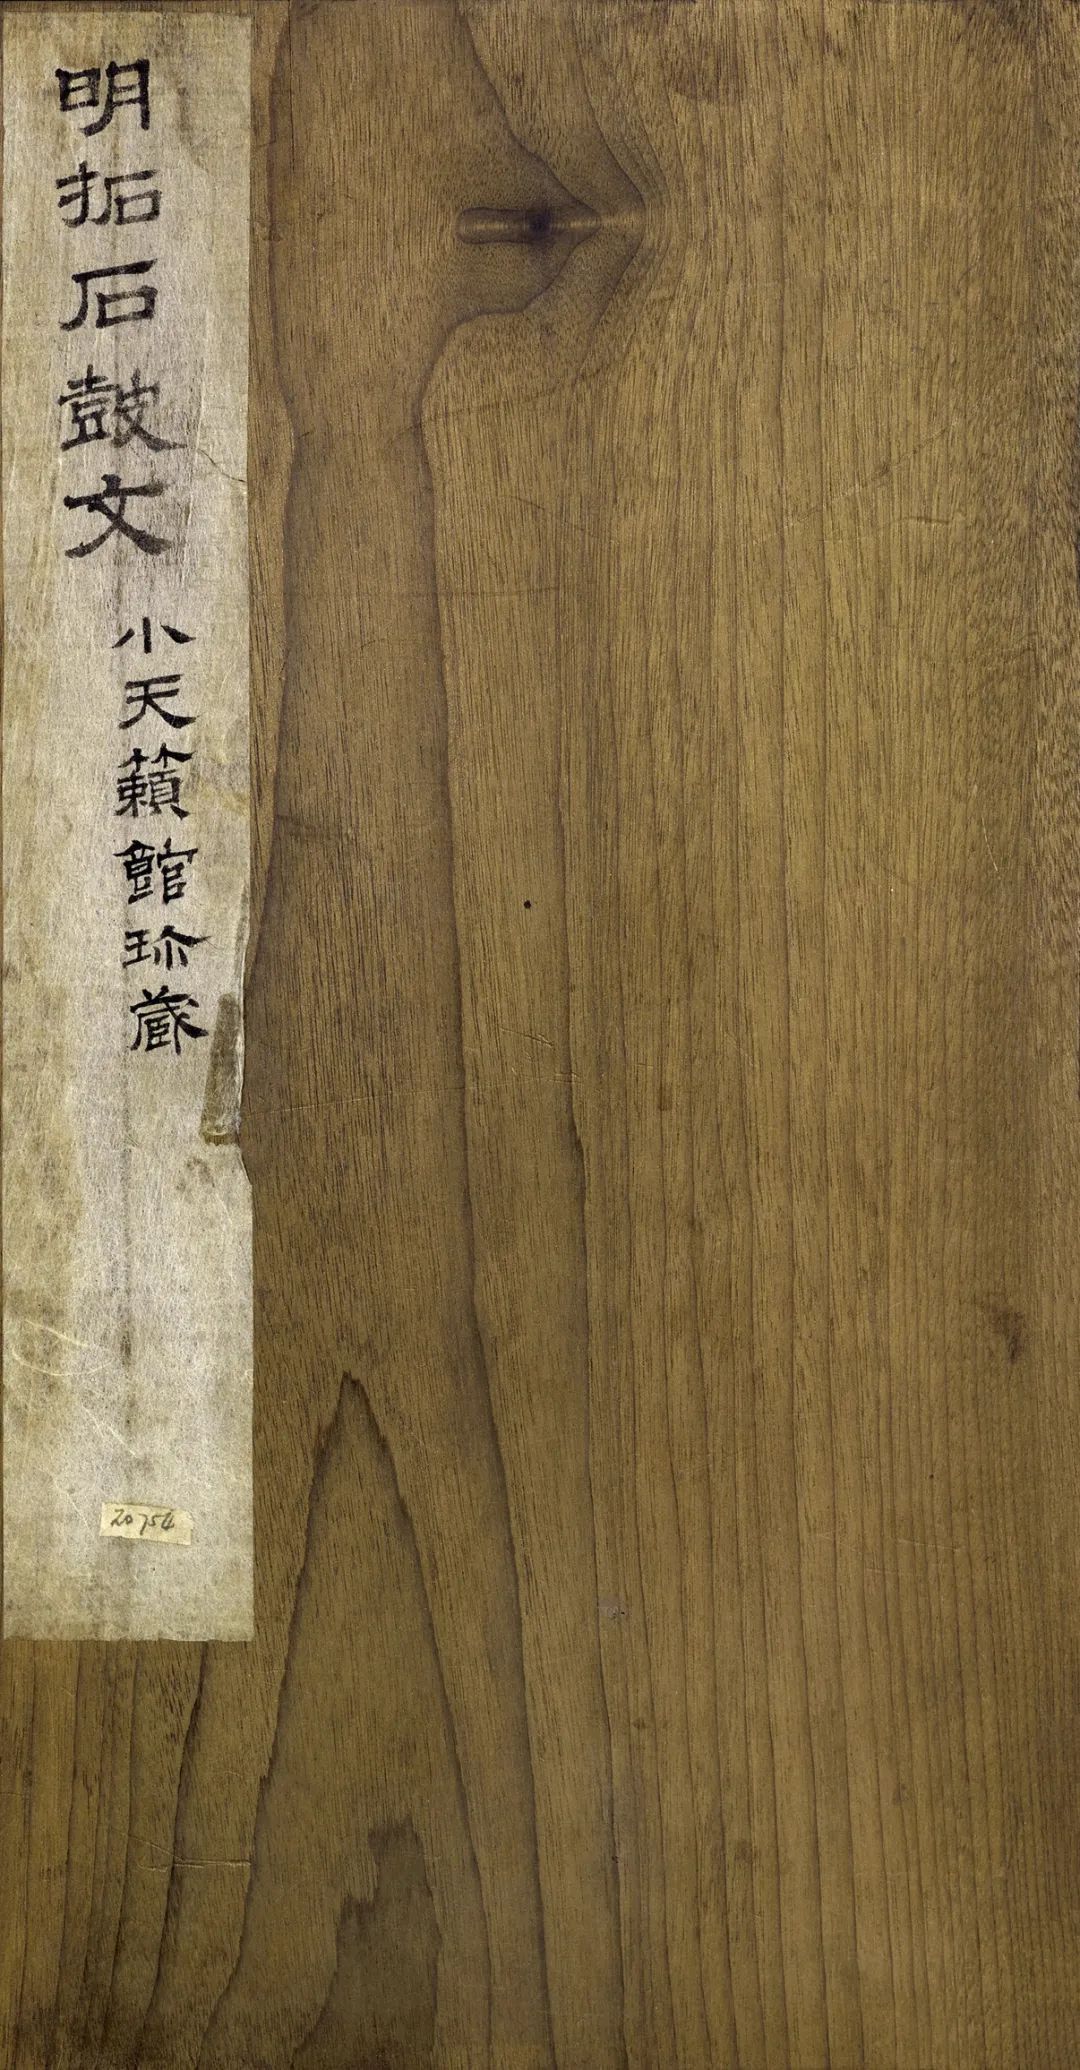 明拓石鼓文
小天籟館珍藏
20754